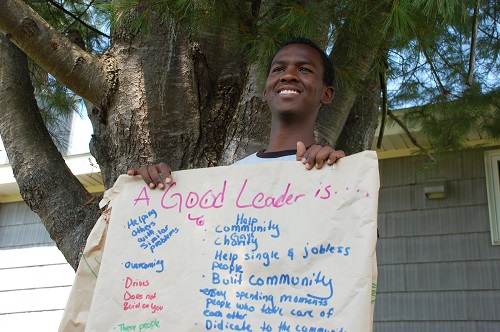 A Good Leader is....
Helping
others
with
similar
problems
overcoming
Drives
Does not
Build on you
There people
Help
community
charity
Help single & jobless
people
Built community
enjoy spending moments
people who take care of
each other
Didicate to the communit